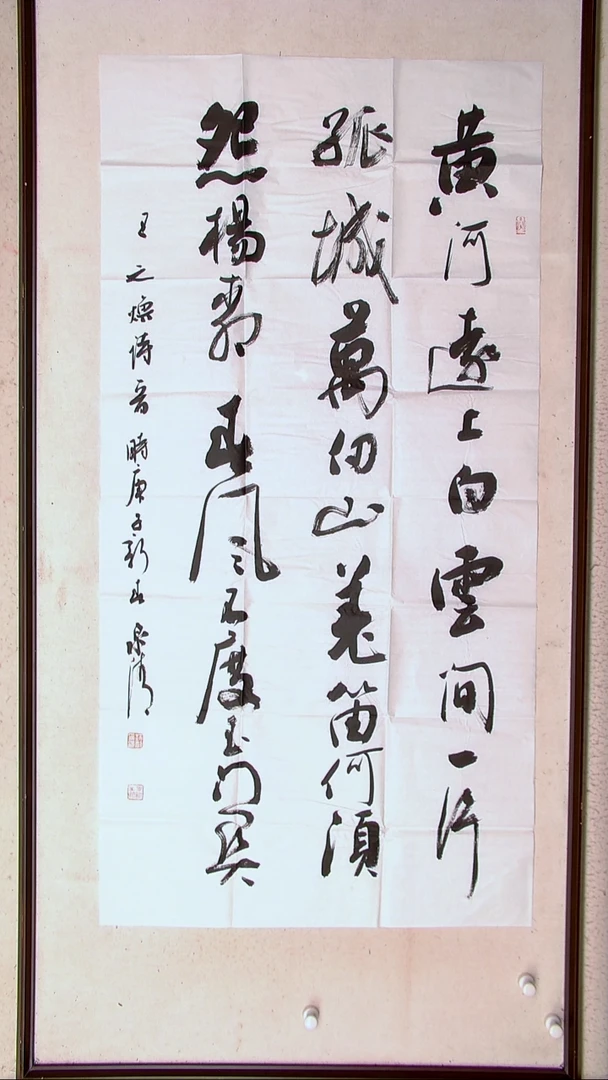 黄河遠上白雲間一片
孤城萬仞山羌笛何須
怨楊柳春風不度玉门關
王之渙詩 時庚子新春